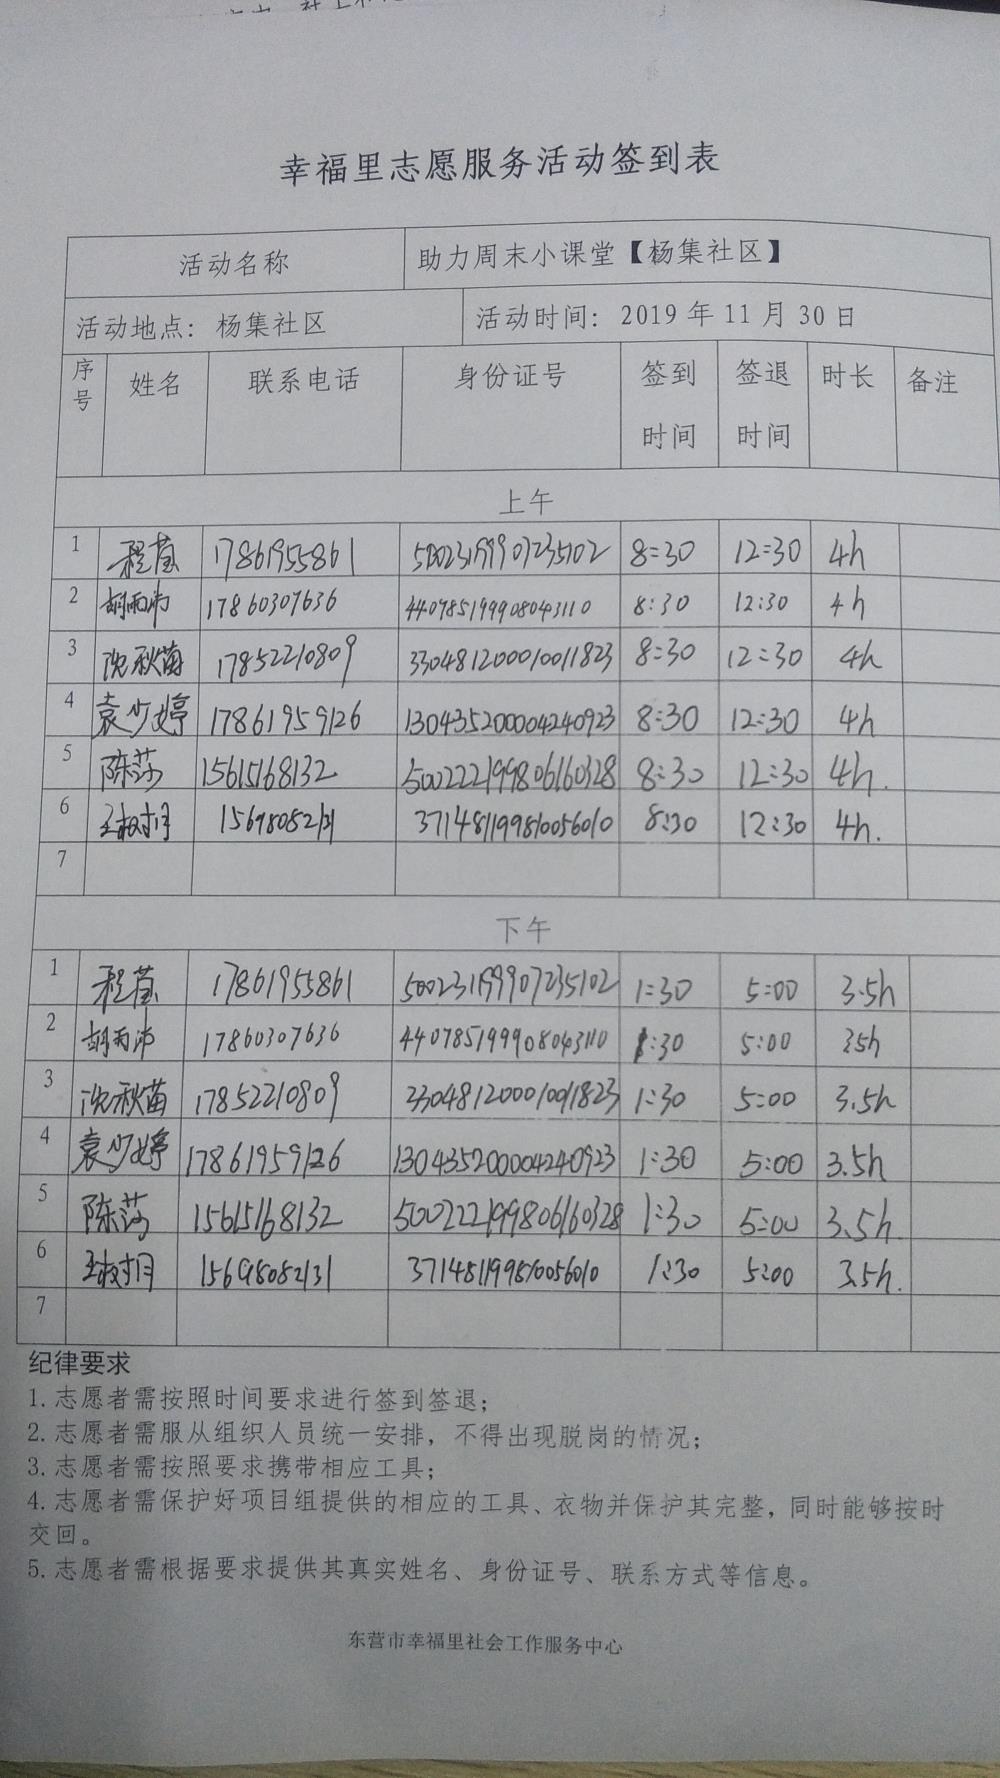 幸福里志愿服务活动签到表
活动名称 助力周末小课堂【杨集社区】
活动地点：杨集社区 活动时间：2019 年 11 月 30 日
序号 姓名 联系电话 身份证号 签到时间 签退时间 时长 备注
上午
1 程莹 17861955861 500231199907235102 8:30 12:30 4h
2 胡雨沛 17860307636 440785199908043110 8:30 12:30 4h
3 沈秋苗 17852210809 330481200010011823 8:30 12:30 4h
4 袁少婷 17861959126 130435200004240923 8:30 12:30 4h
5 陈莎 15615168132 500222199806160328 8:30 12:30 4h.
6 15698082131 371481199810056010 8:30 12:30 4h.
7
下午
1 程莹 17861955861 500231199907235102 1:30 5:00 3.5h
2 胡雨沛 17860307636 440785199908043110 1:30 5:00 3.5h
3 沈秋苗 17852210809 330481200010011823 1:30 5:00 3.5h
4 袁少婷 17861959126 130435200004240923 1:30 5:00 3.5h
5 陈莎 15615168132 500222199806160328 1:30 5:00 3.5h.
6 15698082131 371481199810056010 1:30 5:00 3.5h.
7
纪律要求
1.志愿者需按照时间要求进行签到签退；
2.志愿者需服从组织人员统一安排，不得出现脱岗的情况；
3.志愿者需按照要求携带相应工具；
4.志愿者需保护好项目组提供的相应的工具、衣物并保护其完整，同时能够按时
交回。
5.志愿者需根据要求提供其真实姓名、身份证号、联系方式等信息。
东营市幸福里社会工作服务中心